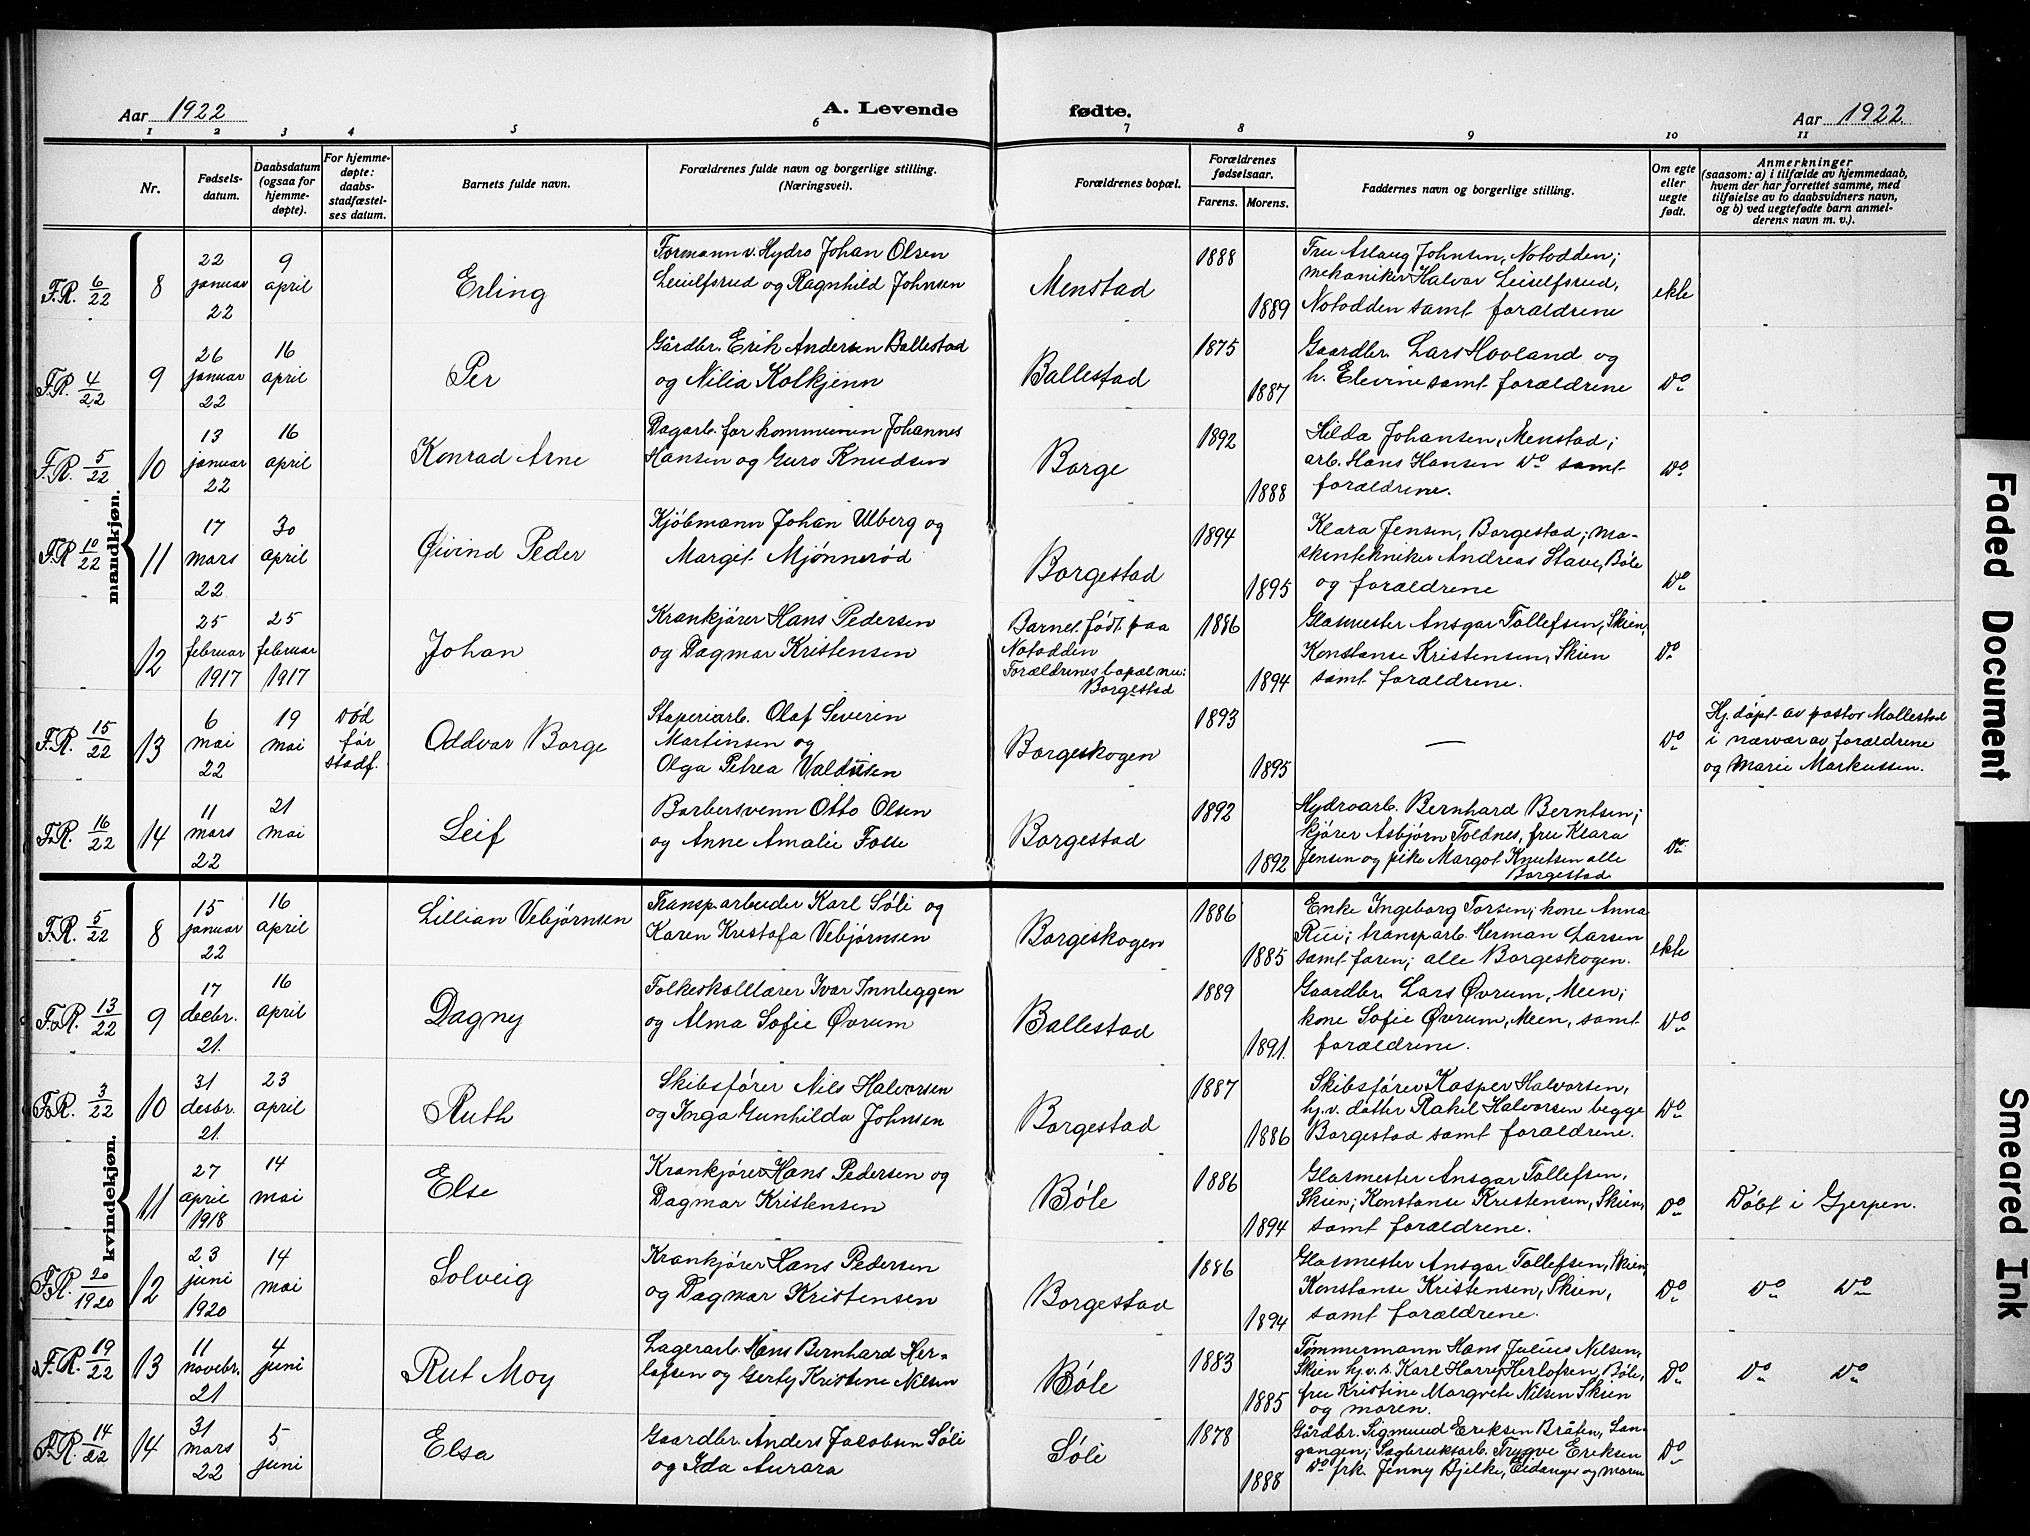 Aar 1922
A. Levende
fødte.
Aar 1922.
1 2 3 4 5 6 7 8 9 10 11
Nr.
Fødsels-
datum.
Daabsdatum
(ogsaa for
hjemme-
døpte).
For hjemme-
døpte:
daabs-
stadfæstel-
ses datum.
Barnets fulde navn.
Forældrenes fulde navn og borgerlige stilling.
(Næringsvei).
Forældrenes bopæl.
Forældrenes
fødselsaar.
Farens. Morens.
Faddernes navn og borgerlige stilling.
Om egte
eller
uegte
født.
Anmerkninger
(saasom: a) i tilfælde av hjemmedaab,
hvem der har forrettet samme, med
tilføielse av to daabsvidners navn,
og b) ved uegtefødte barn anmel-
derens navn m. v.).
mandkjøn.
F.R. 6/22
8
22
januar
22
9
april
Erling
Formann v. Hydro Johan Olsen
Leiulfsrud og Ragnhild Johnsen
Menstad
1888
1889
Fru Aslaug Johnsen, Notodden;
mekaniker Halvor Leiulfsrud,
Notodden samt forældrene
ekte
F.R. 4/22
9
26
januar
22
16
april
Per
Gårdbr. Erik Andersen Ballestad
og Nilia Kolkjenn
Ballestad
1875
1887
Gaardbr. Lars Hovland og
h. Elevine samt forældrene
Do
F.R. 5/22
10
13
januar
22
16
april
Konrad Arne
Dagarb. for kommunen Johannes
Hansen og Guro Knudsen
Borge
1892
1888
Hilda Johansen, Menstad;
arb. Hans Hansen Do samt
forældrene.
Do
F.R. 10/22
11
17
mars
22
30
april
Øivind Peder
Kjøbmann Johan Ulberg og
Margit Mjønnerød
Borgestad
1894
1895
Klara Jensen, Borgestad; ma-
skintekniker Andreas Stave, Bøle
og forældrene
Do
12
25
februar
1917
25
februar
1917
Johan
Krankjører Hans Pedersen
og Dagmar Kristensen
Barnet født paa
Notodden
Forældrenes bopæl nu:
Borgestad
1886
1894
Glasmester Ansgar Tollefsen, Skien,
Konstanse Kristensen, Skien
samt forældrene.
Do
F.R. 15/22
13
6
mai
22
19
mai
Død
før
stadf.
Oddvar Borge
Støperiarb. Olaf Severin
Martinsen og
Olga Petrea
Borgeskogen
1893
1895
—
Do
Hj. døpt av pastor Mollestad
i nærvær av forældrene
og Marie Markussen.
F.R. 16/22
14
11
mars
22
21
mai
Leif
Barbersvenn Otto Olsen
og Anne Amalie Fosse
Borgestad
1892
1892
Hydroarb. Bernhard Berntsen;
kjører Asbjørn Toldnes, fru Klara
Jensen og pike Margot Knutsen alle
Borgestad
Do
kvindekjøn.
F.R. 5/22
8
15
januar
22
16
april
Lillian Vebjørnsen
Transp.arbeider Karl Søli og
Karen Kristofa Vebjørnsen
Borgeskogen
1886
1885
Enke Ingeborg Torsen; kone Anna
Rui; transp.arb. Herman Larsen
samt faren; alle Borgeskogen.
ekte
F.R. 13/22
9
17
decbr.
21.
16
april
Dagny
Folkeskolelærer Ivar Innleggen
og Alma Sofie Øvrum
Ballestad
1889
1891.
Gaardbr. Lars Øvrum, Meen;
kone Sofie Øvrum, Meen, samt
forældrene.
Do
F.R. 3/22
10
31
desbr.
21.
23
april
Ruth
Skibsfører Nils Halvorsen
og Inga Gunhilda Johnsen
Borgestad
1887
1886
Skibsfører Kasper Halvorsen,
hj.v. datter Rakil Halvorsen begge
Borgestad samt forældrene.
Do
11
27
april
1918
14
mai
Else
Krankjører Hans Pedersen og
Dagmar Kristensen
Bøle
1886
1894
Glasmester Ansgar Tollefsen,
Skien; Konstanse Kristensen, Skien,
samt forældrene.
Do
Døbt i Gjerpen.
F.R. 20/1920
12
23
juni
1920
14
mai
Solveig
Krankjører Hans Pedersen
og Dagmar Kristensen
Borgestad
1886
1894
Glasmester Ansgar Tollefsen, Skien,
Konstanse Kristensen, Skien,
samt forældrene.
Do
Do Do
F.R. 19/22
13
11
novebr.
21
4
juni
Rut Moy
Lagerarb. Hans Bernhard Her-
lofsen og Gerty Kristine Nilsen
Bøle
1883
1885
Tømmermann Hans Julius Nilsen,
Skien hj.v. s. Karl Harry Herlofsen, Bøle,
fru Kristine Margrete Nilsen Skien
og moren.
Do
Do Do
F.R. 14/22
14
31
mars
22
5
juni
Elsa
Gaardbr. Anders Jacobsen Søli
og Ida Aurora
Søli
1878
1888
Gårdbr. Sigmund Eriksen Bråten, Lan-
gangen; Sagbruksarb. Trygve Eriksen
Do frk. Jenny Bjelke, Eidanger og moren
Do
Faded Document
Smeared Ink